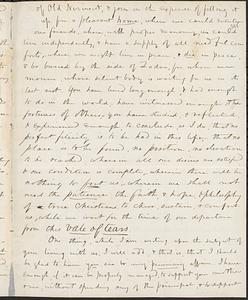 of Old Vermont, & join in the expense of fitting it
up, for a pleasant home, where we could invite
our friends, where with proper economy, we could
live independently, & have a supply of all needful com
forts, where we might live in peace & die in peace
& be buried by the side of Loder, for whom we
mourn, whose silent body is waiting for us in the
last rest. You have lived long enough & had enough
to do in the world, have witnessed enough the
fortunes of others, you have studied, & reflected
& experienced enough to conclude as I do, that no
perfect felicity is to be had in this life, that no
place is to be found, no position, no elevation
to be reached wherein all our desires are satisfied
& our condition is complete, wherein there will be
nothing to fret us, wherein we shall not
need the patience, the faith & hope & philosophy
of a true Christian to cheer, sustain, & comfort
us, while we wait for the time of our departure
from this Vale of tears.
One thing, while I am writing upon the subject of
your living with us, I will add, & that is, I should
be glad to have you be in my
enough if it can be properly managed to support you & mother
& me, without spending any of the principal, & to support